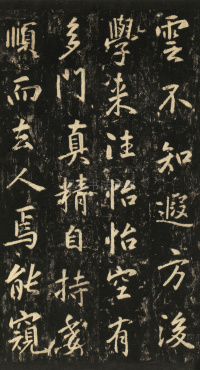 雲不知遐方後
學来往怡怡空有
多門真精自持處
順而去人焉能窺